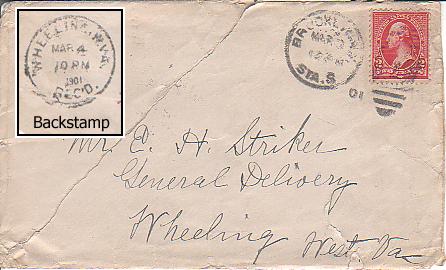 WHEELING, W.VA.
MAR 4
10 PM
1901
REC'D.
Backstamp
BROOKLYN, N.Y.
MAR 3
STA. S.
01
2 2
Mr. C. H. Striker
General Delivery
Wheeling
West. Va